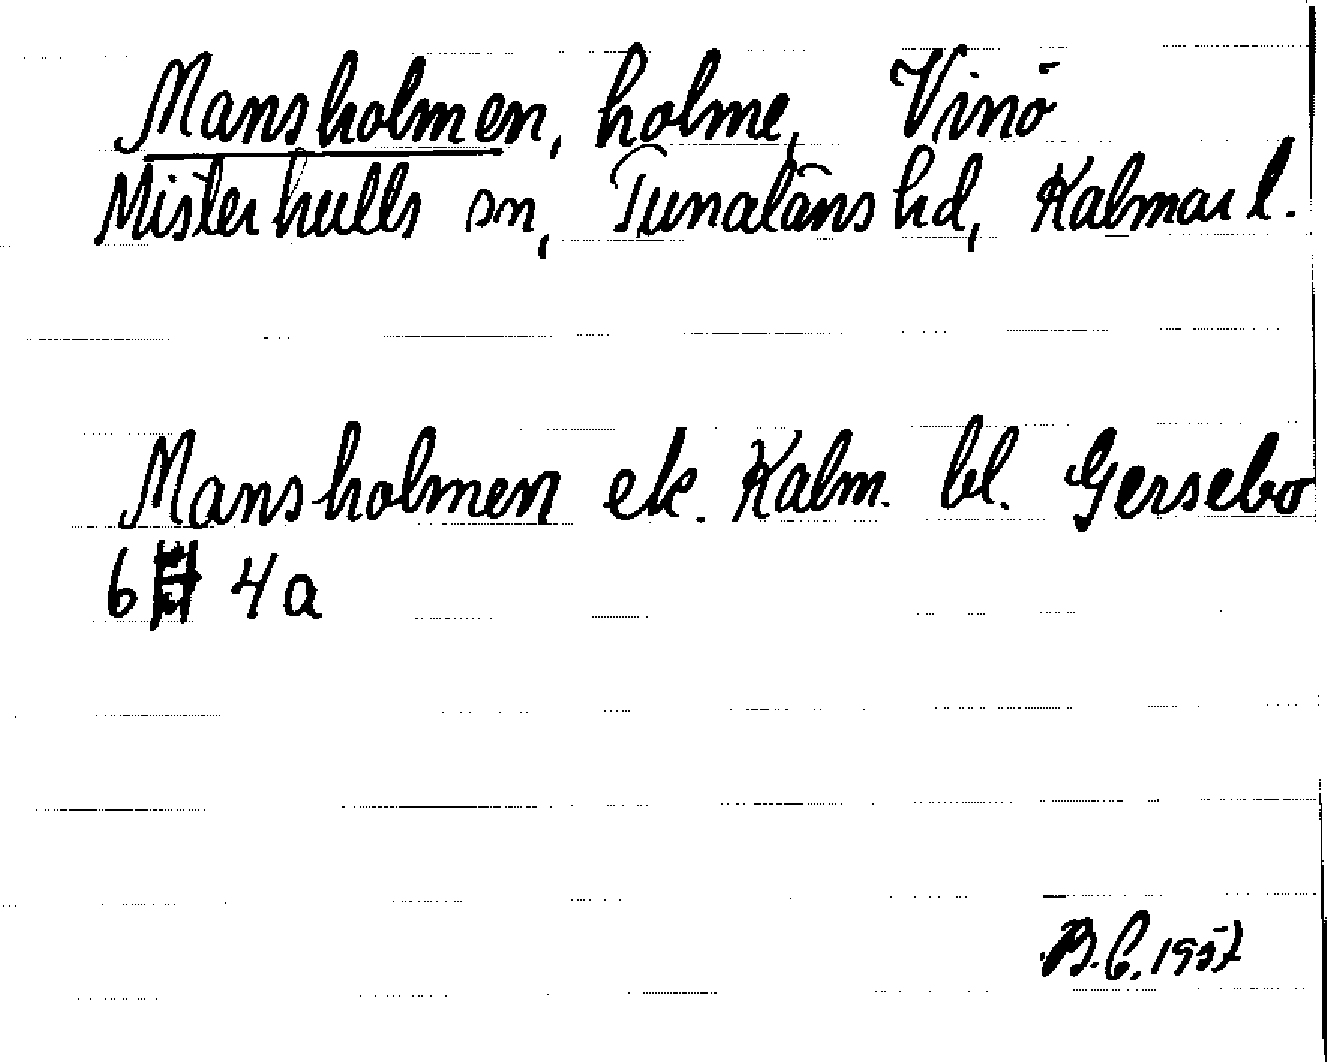 Mansholmen, holme, Vinö
Misterhults sn, Tunaläns hd, Kalmar l.
Mansholmen ek. Kalm. bl. Gersebo
6 4a
B.C. 1957